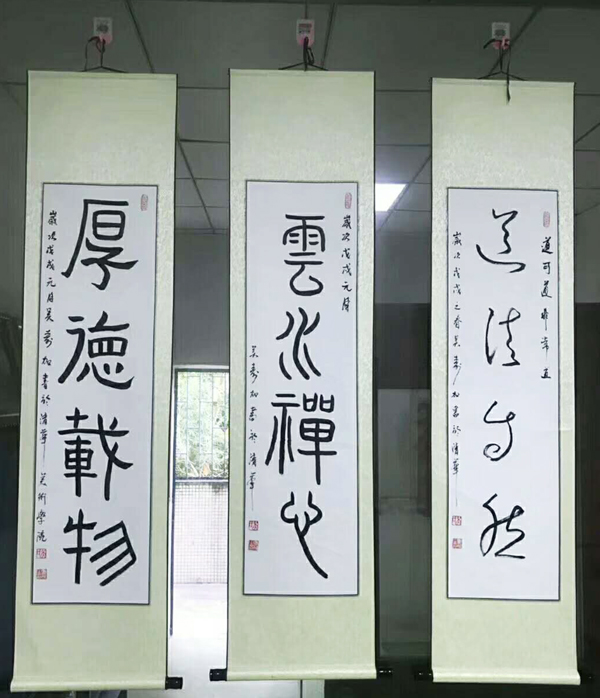 厚德載物
歲次戊戌元月吳壽松書於清華美術學院
雲水禪心
歲次戊戌元月
吳壽松書於清華
道法自然
道可道非常道
歲次戊戌之春吳壽松書於清華